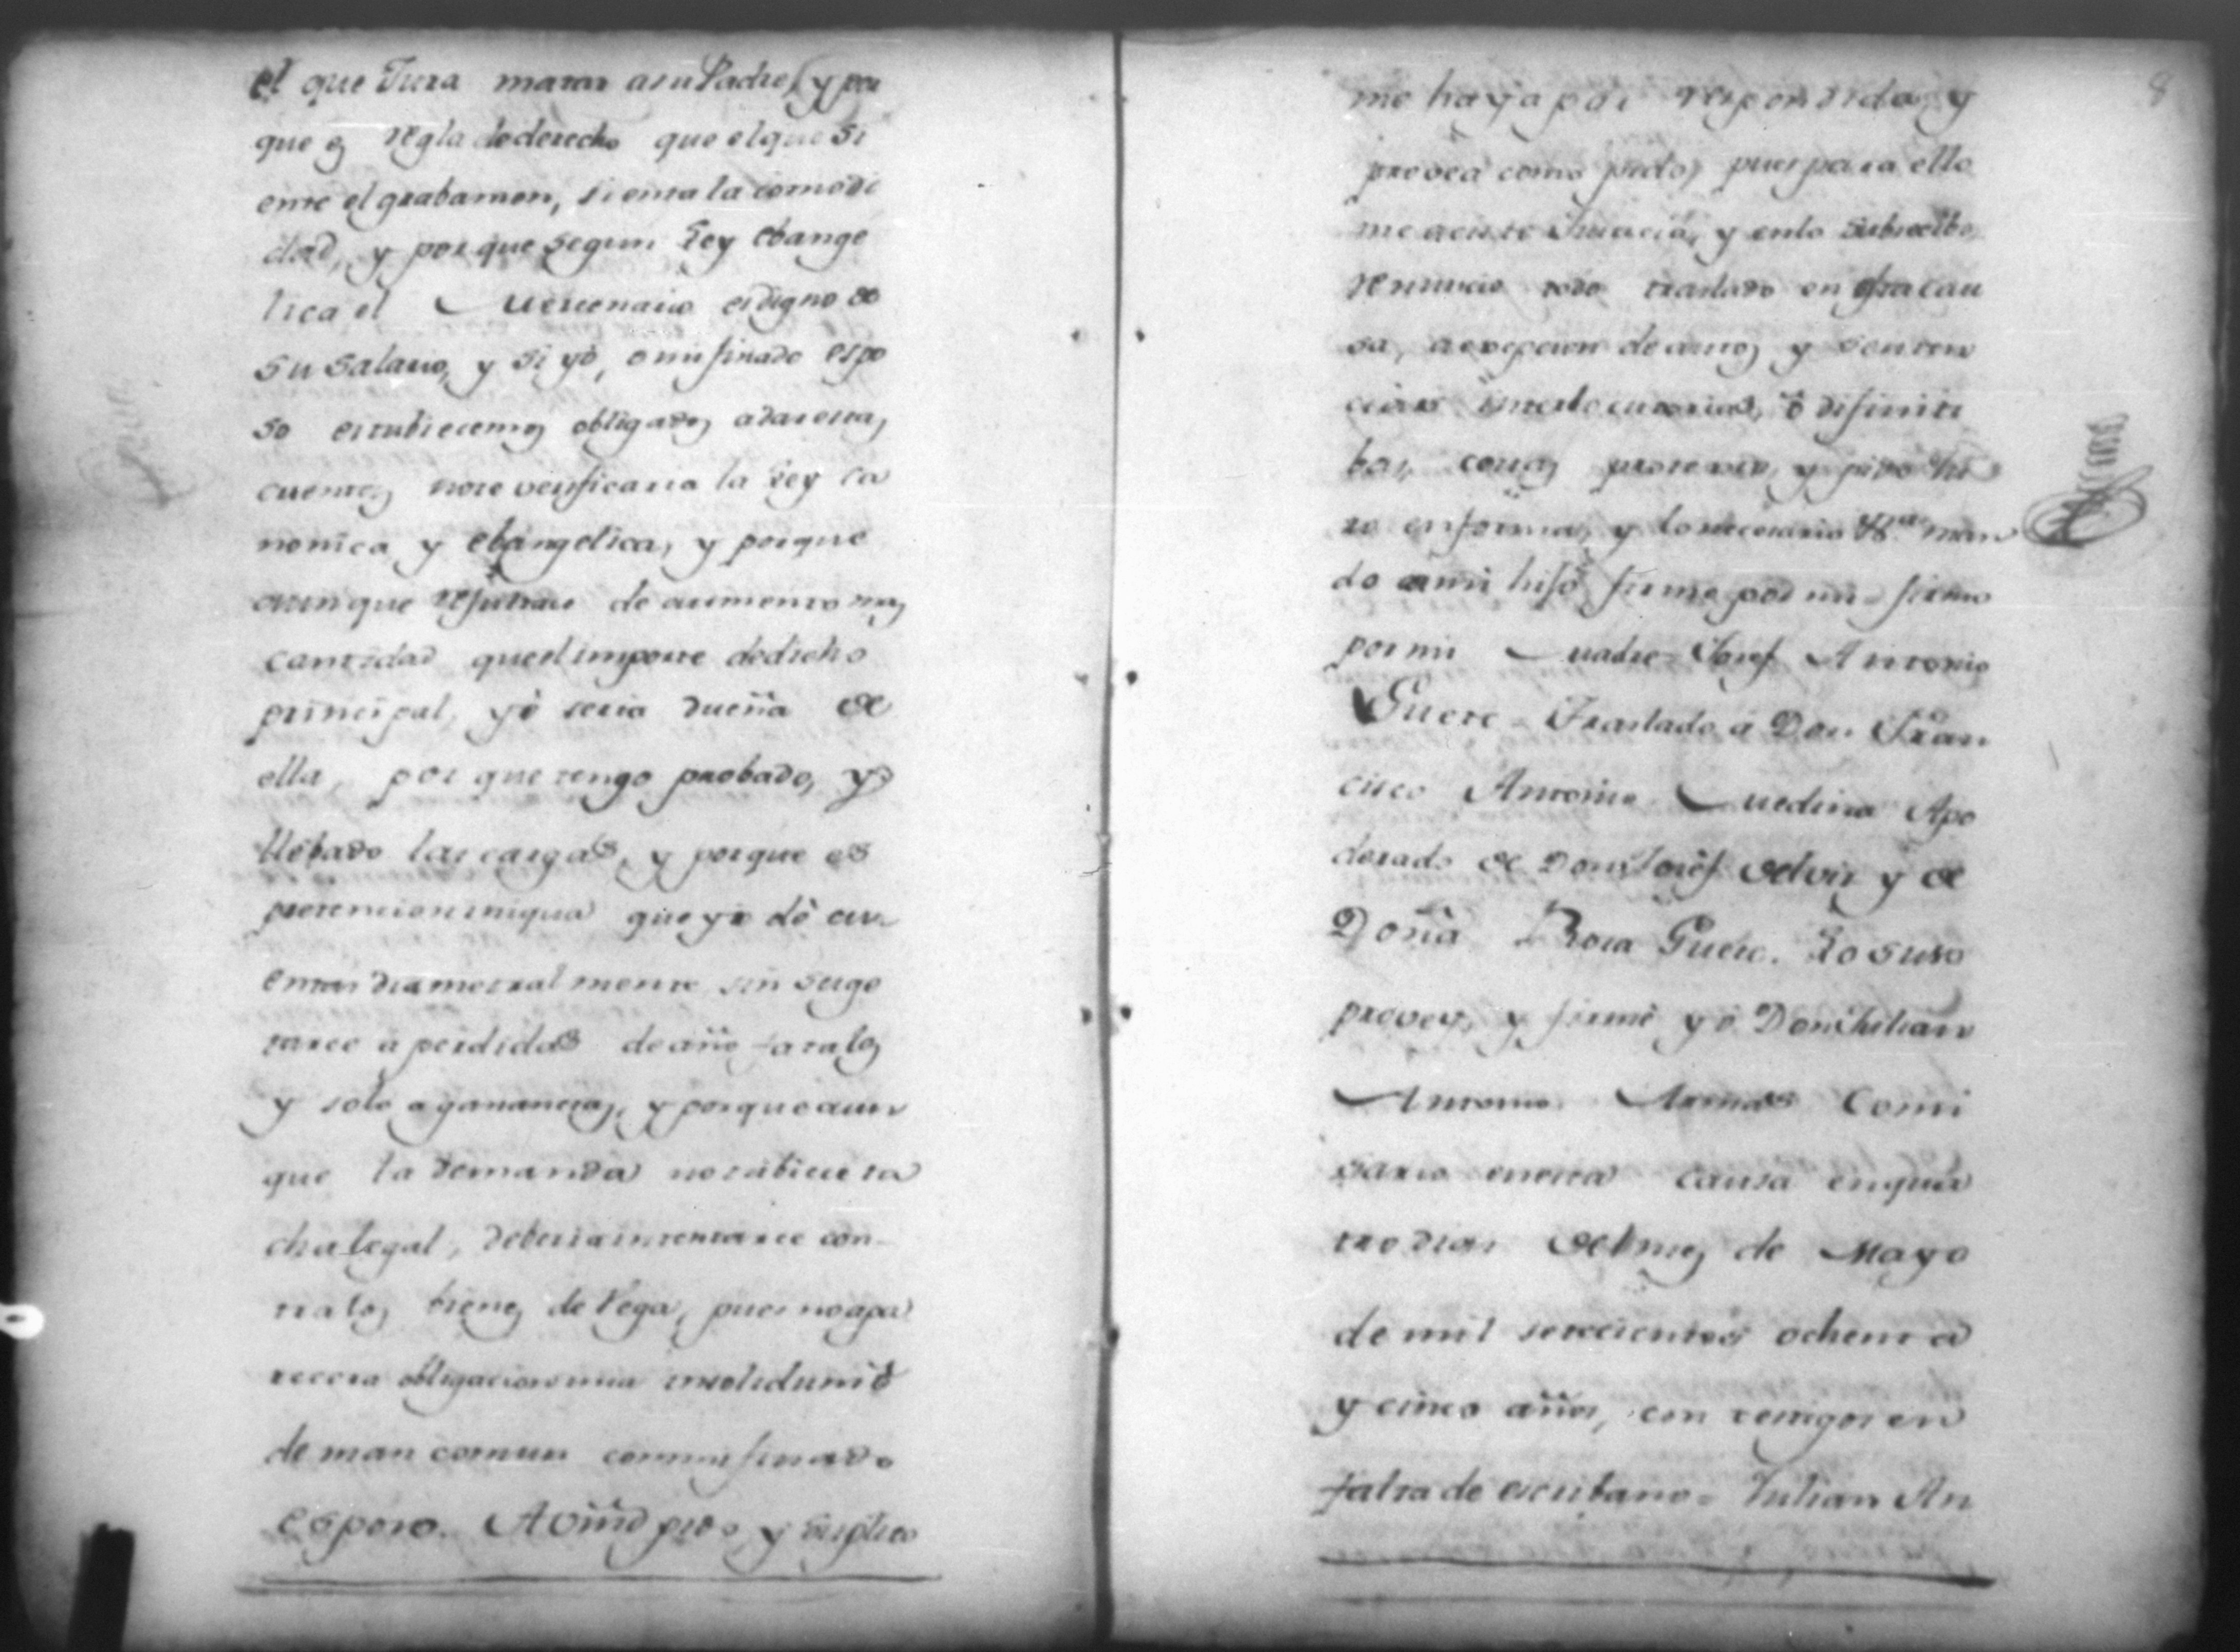 el que Jura matar a su Padre, y por
que es regla de derecho que el que si
ente el grabamen, sienta la comodi
dad, y por que segun Ley ebange
lica el Mercenario es digno de
su salario, y si yo, o mi finado espo
so estubiecemos obligados a dar estas
cuentas no se verificaria la Ley ca
nonica y ebangelica, y porque
aunque resultase de aumento mas
cantidad que el importe de dicho
principal, yo seria dueña de
ella, por que tengo probado, y
llebado las cargas, y porque es
pretencion iniqua que yo dè cu
entas diametralmente sin suge
tarce à perdidas de año fatales
y solo a ganancias, y porque aun
que la demanda no tubiera ta
cha legal, deberia intentarce con
tra los bienes de Vega, pues no apa
recera obligacion mia insolidum ò
de man comun con mi finado
esposo. A Vmd pido, y suplico
8
me haya por respondida, y
provea como pido, pues para ello
me aciste Justicia, y en lo subcecibo
renuncio todo traslado en esta cau
sa, a excepcion de autos y senten
cias interlocutorias, ò difiniti
bas, costas protexto, y pido Ju
ro en forma, y lo necesario &.a man
do a mi hijo firme por mi = firmo
por mi Madre = Josef Antonio
Guere = Traslado à Don Fran
cisco Antonio Medina Apo
derado de Don Josef y de
Doña Rosa Guere. Lo suso
provey, y firmè yo Don Julian
Antonio Armas Comi
sario en esta causa en qua
tro dias del mes de Mayo
de mil setecientos ochenta
y cinco años, con testigos en
falta de escribano = Julian An